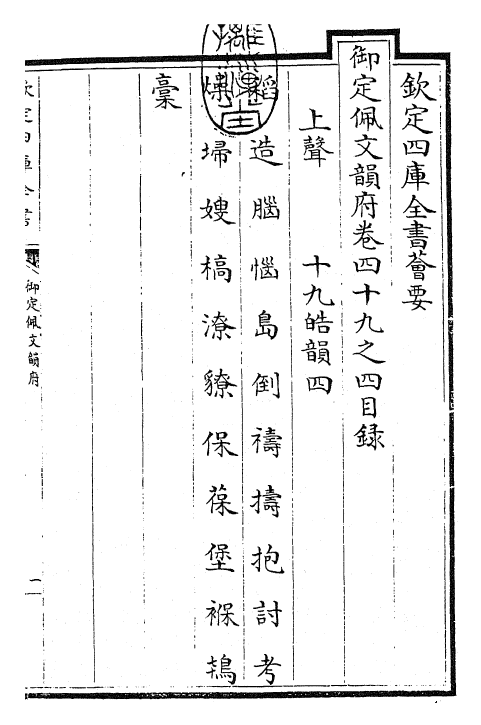 欽定四庫全書薈要
御定佩文韻府卷四十九之四目録
上聲 十九皓韻四
稻造腦惱島倒禱擣抱討考
燥埽嫂槁潦獠保葆堡褓鴇
稾
欽定四庫全書
御定佩文韻府
一